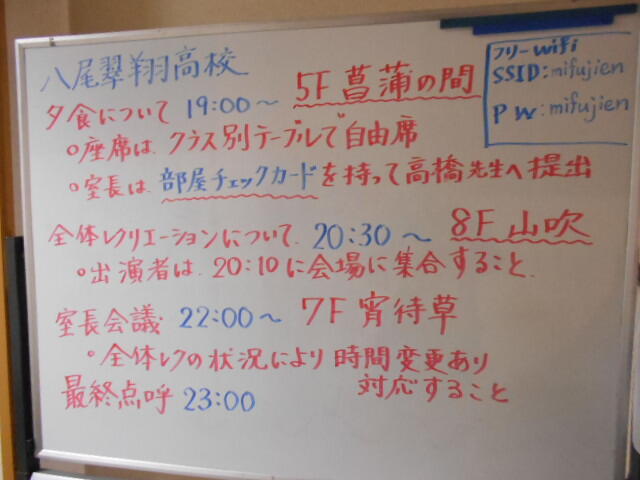 八尾翠翔高校
フリーwifi
SSID:mifujien
PW:mifujien
夕食について 19:00～ 5F 菖蒲の間
○座席は、クラス別テーブルで自由席
○室長は、部屋チェックカードを持って高橋先生へ提出
全体レクリエーションについて、20:30～ 8F 山吹
○出演者は、20:10に会場に集合すること。
室長会議 22:00～ 7F 宵待草
○全体レクの状況により時間変更あり
対応すること
最終点呼 23:00